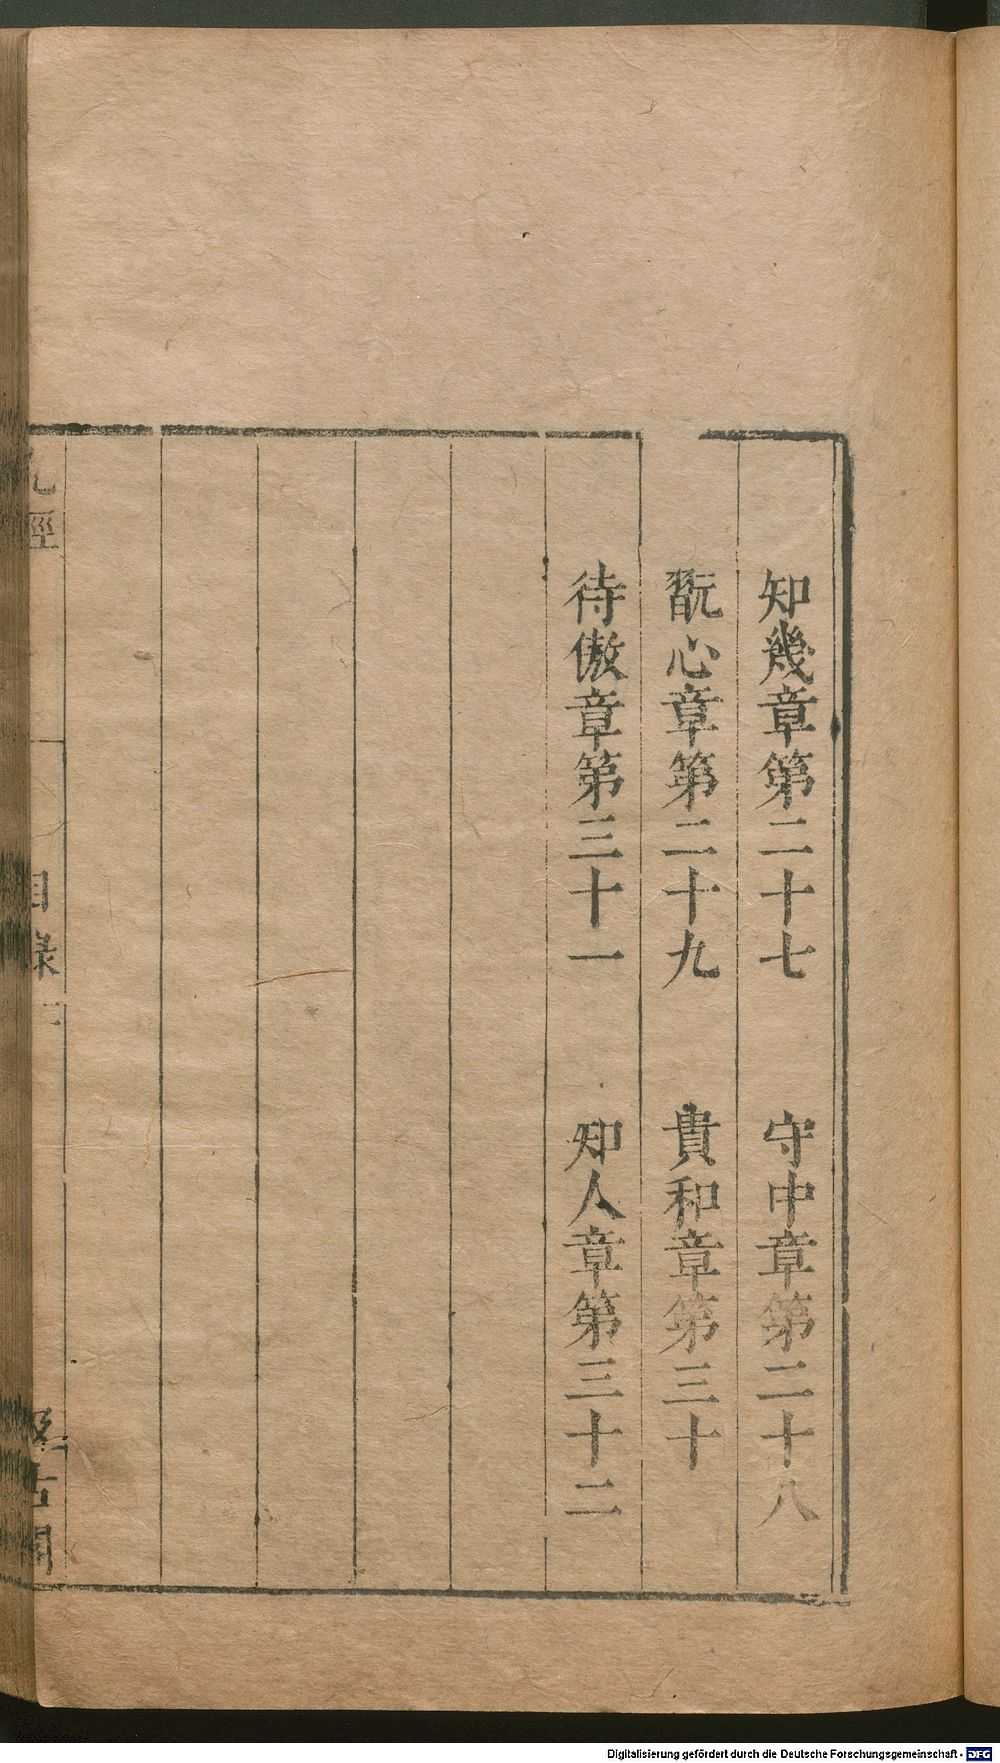 知幾章第二十七　守中章第二十八
翫心章第二十九　貴和章第三十
待傲章第三十一　知人章第三十二
經
目錄
古閣
Digitalisierung gefördert durch die Deutsche Forschungsgemeinschaft - DFG